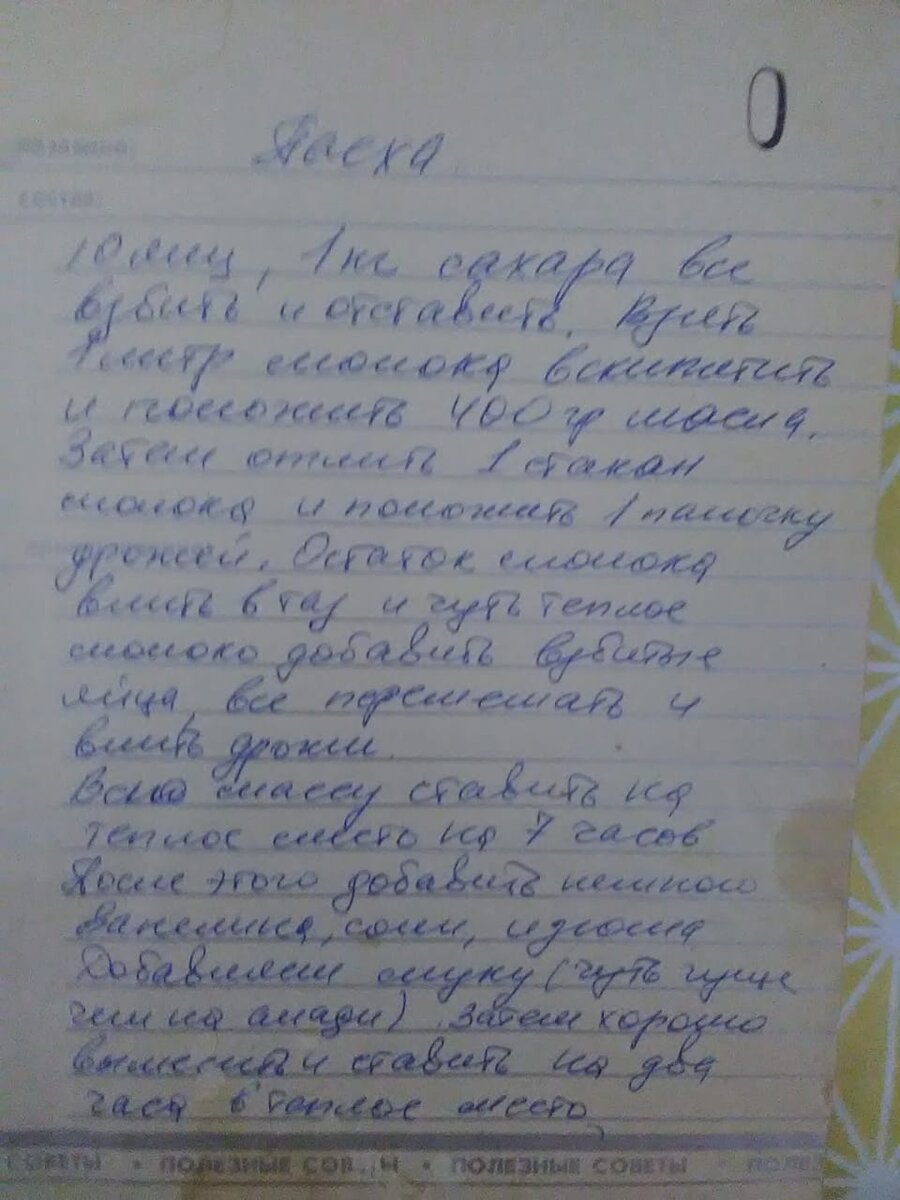 Пасха
10 яиц, 1 кг сахара все
взбить и отставить. Взять
1 литр молока вскипятить
и положить 400 гр масла.
Затем отлить 1 стакан
молока и положить 1 палочку
дрожжей. Остаток молока
влить в таз и чуть теплое
молоко добавить взбитые
яйца, все перемешать и
влить дрожжи.
Всю массу ставить на
теплое место на 7 часов
После этого добавить немного
ванелина, соли, изюма
Добавляем муку (чуть гуще
чем на оладьи). Затем хорошо
вымесить и ставить на два
часа в теплое место,
СОВЕТЫ • ПОЛЕЗНЫЕ СОВ Ы • ПОЛЕЗНЫЕ СОВЕТЫ • ПОЛЕЗ